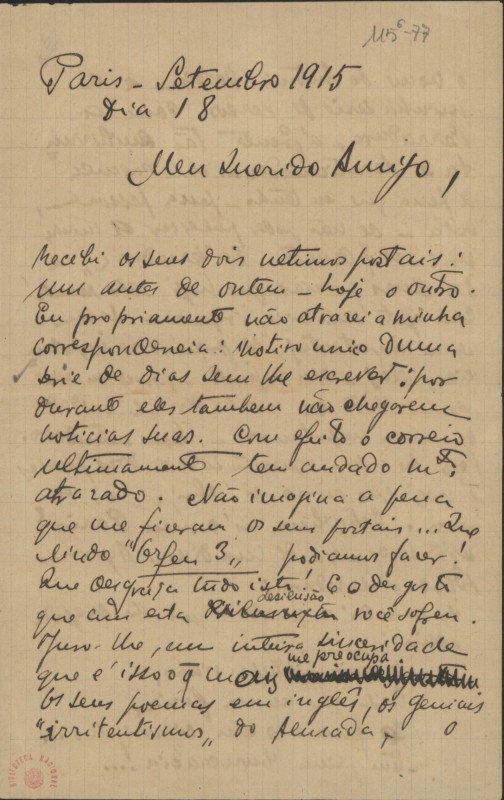 115⁶-77
Paris - Setembro 1915
Dia 18
Meu Querido Amigo,
Recebi os seus dois ultimos postais:
um antes de ontem - hoje o outro.
Eu propriamente não atrazei a minha
correspondencia: Motivo unico duma
série de dias sem lhe escrever: por
durante eles tambem não chegarem
noticias suas. Com efeito o correio
ultimamente tem andado mto
atrazado. Não imagina a pena
que me fizeram os seus postais... Que
lindo "Orfeu 3" podiamos fazer!
Que desgraça tudo isto! E o desgosto
desilusão
que com esta você sofreu.
Juro-lhe, em inteira sinceridade
me preocupa
que é isso o q mais
Os seus poemas em inglês, os geniais
"irritentismos" do Almada, o
BIBLIOTECA NACIONAL